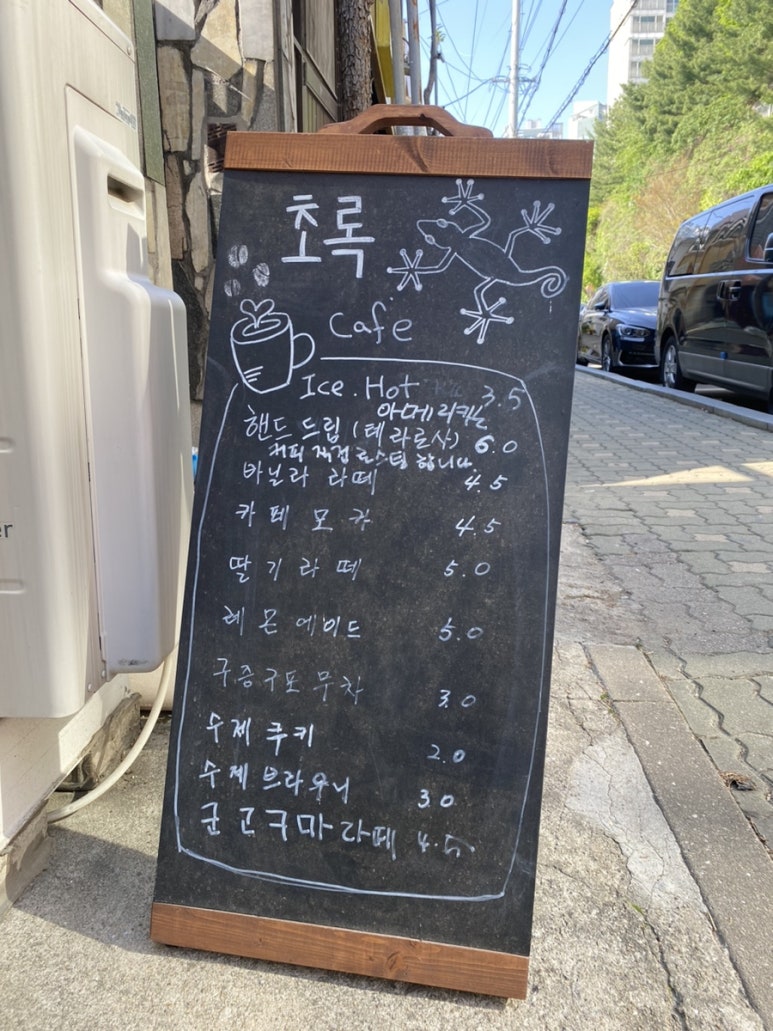 초록
Cafe
Ice . Hot 3.5
아메리카노
핸드드립 (테라로사) 6.0
커피 직접 로스팅 합니다.
바닐라 라떼 4.5
카페모카 4.5
딸기라떼 5.0
레몬에이드 5.0
구증구포 무차 3.0
수제쿠키 2.0
수제브라우니 3.0
군고구마라떼 4.5